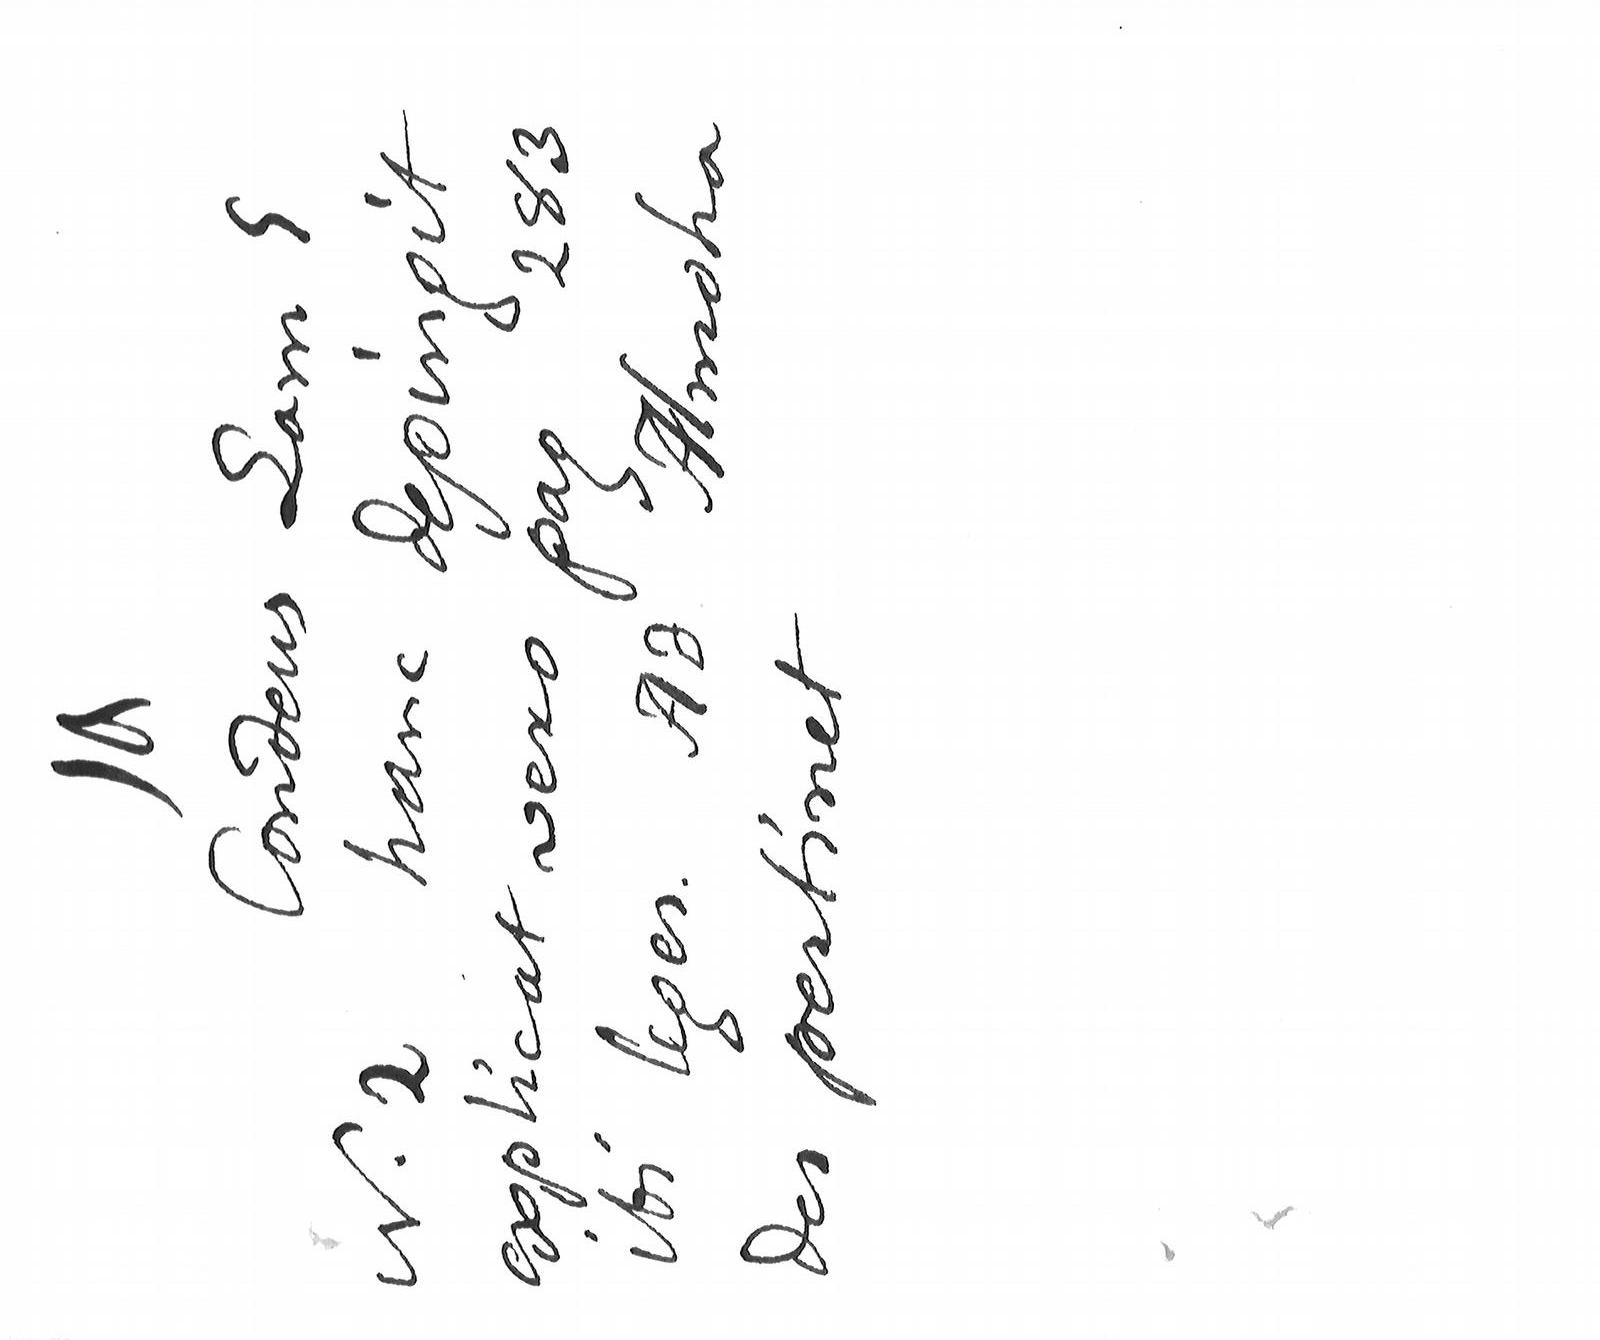 Condeus Lam 5
N. 2 hanc depingit
explicat vero pag 283
ibi leges. AD Almoha
des pertinet